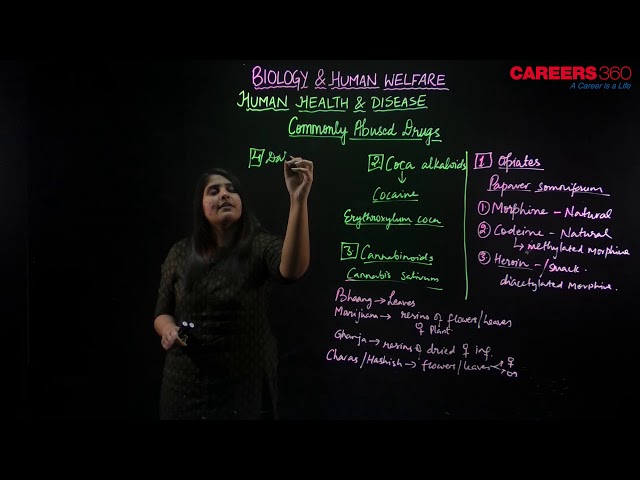 CAREERS360
A Career is a Life
BIOLOGY & HUMAN WELFARE
HUMAN HEALTH & DISEASE
Commonly Abused Drugs
1 Opiates
Papaver somnifsum
① Morphine - Natural
② Codeine - Natural
↳ methylated Morphine
③ Heroin - / smack.
diacetylated Morphine.
2 Coca alkaloids
↓
Cocaine
Erythroxylum coca
3. Cannabinoids
Cannabis sativum
Bhaang → Leaves
Marijuana → resins of flowers/leaves
♀ plant
Ghanja → resins of dried ♀ inf.
Charas/Hashish → flowers/leaves ♀
4